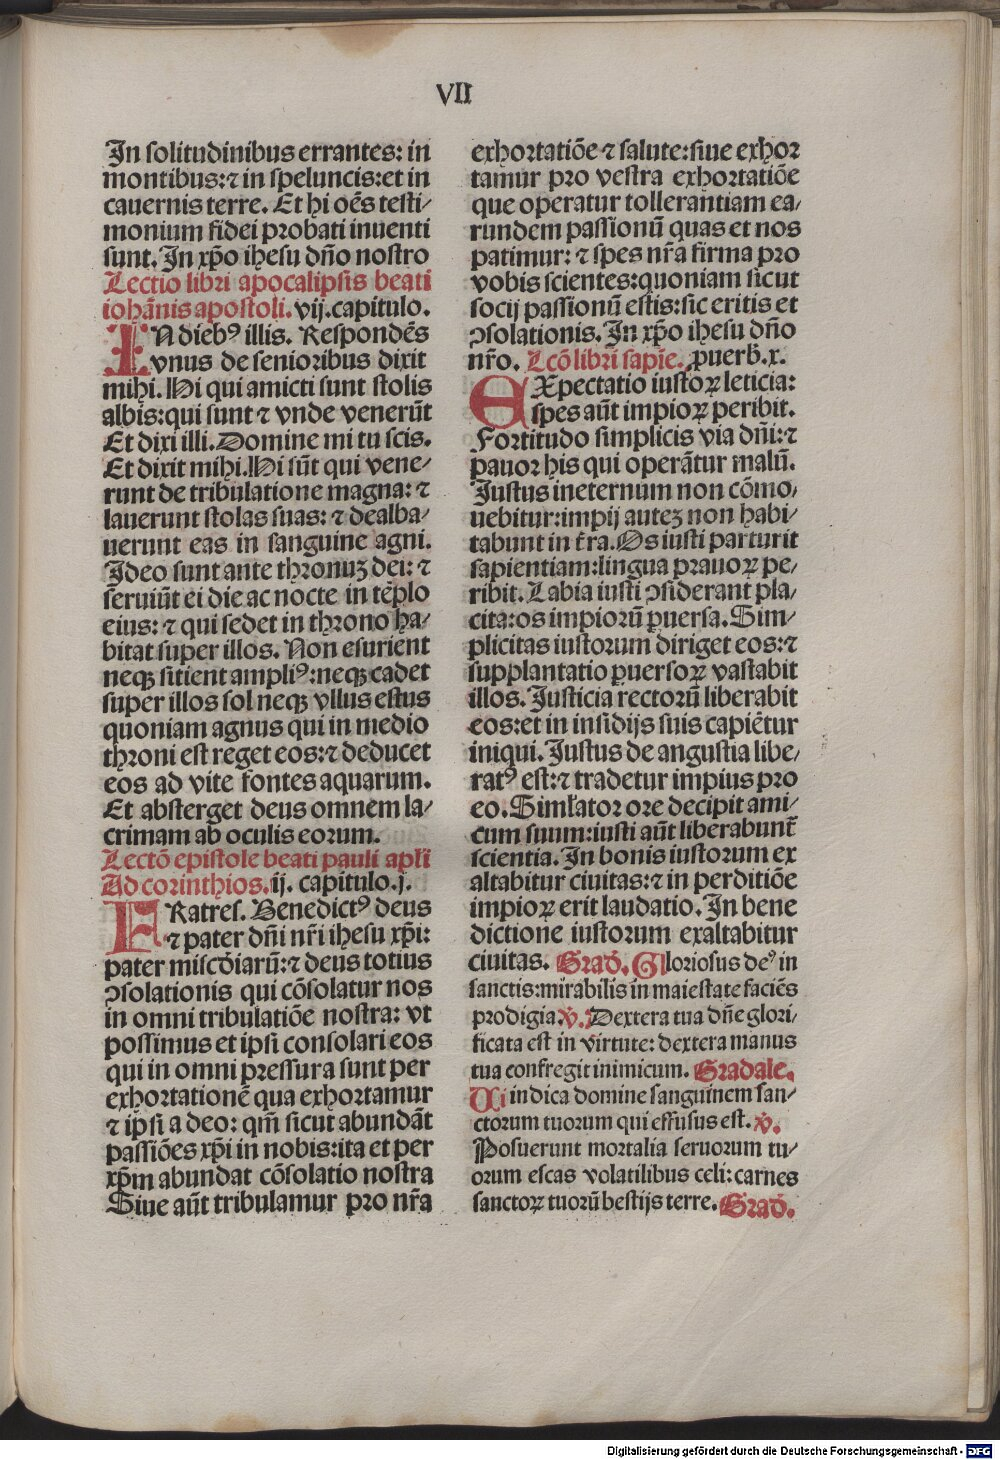 VII
In solitudinibus errantes: in
montibus:⁊ in speluncis:et in
cauernis terre. Et hi oēs testi/
monium fidei probati inuenti
sunt. In xp̄o ihesu dn̄o nostro
Lectio libri apocalipsis beati
iohānis apostoli. vij.capitulo.
IN diebꝰ illis. Respondēs
vnus de senioribus dixit
mihi. Hi qui amicti sunt stolis
albis:qui sunt ⁊ vnde venerūt
Et dixi illi. Domine mi tu scis.
Et dixit mihi. Hi sūt qui vene/
runt de tribulatione magna: ⁊
lauerunt stolas suas: ⁊ dealba/
uerunt eas in sanguine agni.
Ideo sunt ante thronuꝫ dei: ⁊
seruiūt ei die ac nocte in tēplo
eius: ⁊ qui sedet in throno ha/
bitat super illos. Non esurient
neqꝫ sitient ampliꝰ:neqꝫ cadet
super illos sol neqꝫ vllus estus
quoniam agnus qui in medio
throni est reget eos:⁊ deducet
eos ad vite fontes aquarum.
Et absterget deus omnem la/
crimam ab oculis eorum.
Lectō epistole beati pauli apl̄i
Ad corinthios. ij. capitulo.j.
FRatres. Benedictꝰ deus
⁊ pater dn̄i nr̄i ihesu xp̄i:
pater miscd̄iarū:⁊ deus totius
ꝯsolationis qui cōsolatur nos
in omni tribulatiōe nostra: vt
possimus et ipsi consolari eos
qui in omni pressura sunt per
exhortationē qua exhortamur
⁊ ipsi a deo: qm̄ sicut abundāt
passiōes xp̄i in nobis:ita et per
xp̄m abundat cōsolatio nostra
Siue aūt tribulamur pro nr̄a
exhortatiōe ⁊ salute:siue exhor
tamur pro vestra exhortatiōe
que operatur tollerantiam ea/
rundem passionū quas et nos
patimur: ⁊ spes nr̄a firma pro
vobis scientes:quoniam sicut
socij passionū estis:sic eritis et
ꝯsolationis. In xp̄o ihesu dn̄o
nr̄o. Lcō libri sapīe. ꝓuerb̄.x.
EXpectatio iustoꝝ leticia:
spes aūt impioꝝ peribit.
Fortitudo simplicis via dn̄i:⁊
pauor his qui operātur malū.
Iustus ineternum non cōmo/
uebitur:impij auteꝫ non habi/
tabunt in t̄ra. Os iusti parturit
sapientiam:lingua prauoꝝ pe/
ribit. Labia iusti ꝯsiderant pla/
cita:os impiorū ꝑuersa. Sim/
plicitas iustorum diriget eos:⁊
supplantatio ꝑuersoꝝ vastabit
illos. Iusticia rectorū liberabit
eos:et in insidijs suis capiētur
iniqui. Iustus de angustia libe/
ratꝰ est:⁊ tradetur impius pro
eo. Siml̄ator ore decipit ami/
cum suum:iusti aūt liberabunt̄
scientia. In bonis iustorum ex
altabitur ciuitas:⁊ in perditiōe
impioꝝ erit laudatio. In bene
dictione iustorum exaltabitur
ciuitas. Grad̄. Gloriosus deꝰ in
sanctis:mirabilis in maiestate faciēs
prodigia. ℣. Dextera tua dn̄e glori/
ficata est in virtute: dextera manus
tua confregit inimicum. Gradale.
Uindica domine sanguinem san/
ctorum tuorum qui effusus est. ℣.
Posuerunt mortalia seruorum tu/
orum escas volatilibus celi: carnes
sanctoꝝ tuorū bestijs terre. Grad̄.
Digitalisierung gefördert durch die Deutsche Forschungsgemeinschaft - DFG